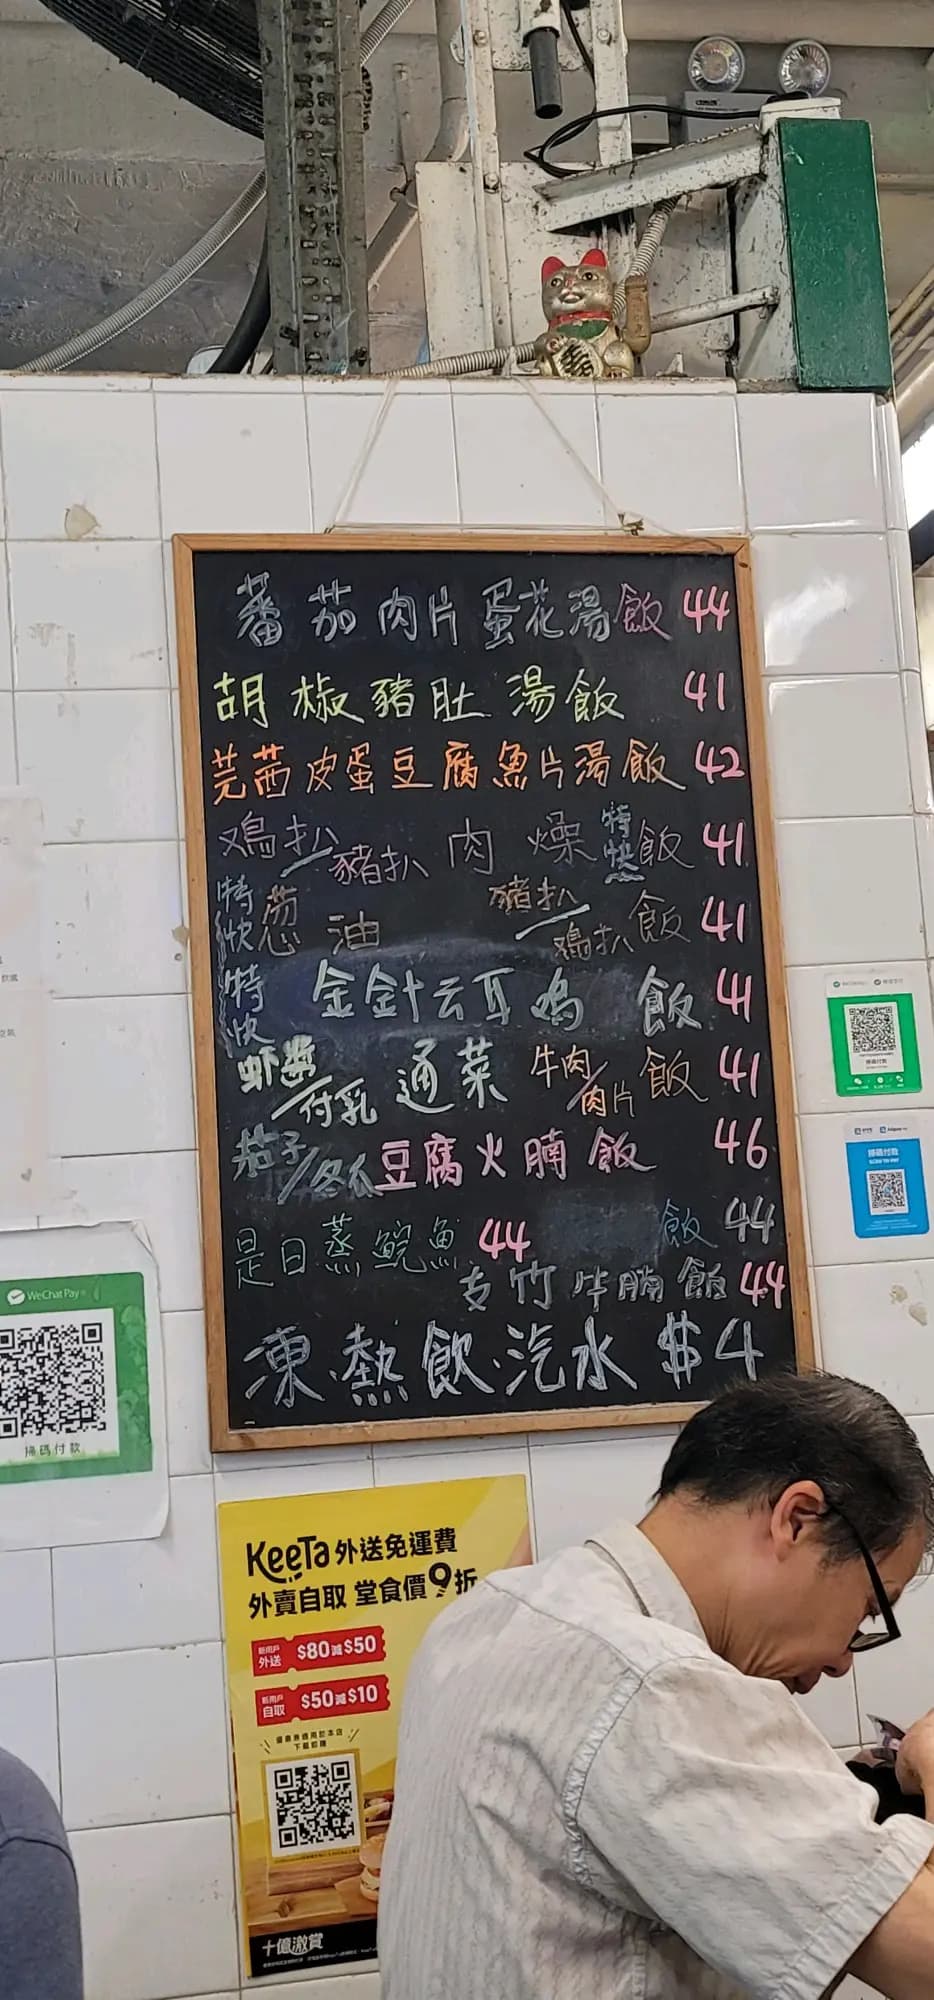 蕃茄肉片蛋花湯飯 44
胡椒豬肚湯飯 41
芫茜皮蛋豆腐魚片湯飯 42
鷄扒/豬扒肉燥特快飯 41
特快葱油豬扒/鷄扒飯 41
特快金針云耳鸡飯 41
虾醬/付乳通菜牛肉/肉片飯 41
茄子/冬瓜豆腐火腩飯 46
是日蒸鯇魚 44 飯 44
支竹牛腩飯 44
凍.熱飲.汽水 $4
WeChat Pay
掃碼付款
掃碼付款
掃碼付款
SCAN TO PAY
KeeTa 外送免運費
外賣自取 堂食價9折
新用戶外送 $80減$50
新用戶自取 $50減$10
優惠券適用於本店
下載即賺
十億激賞